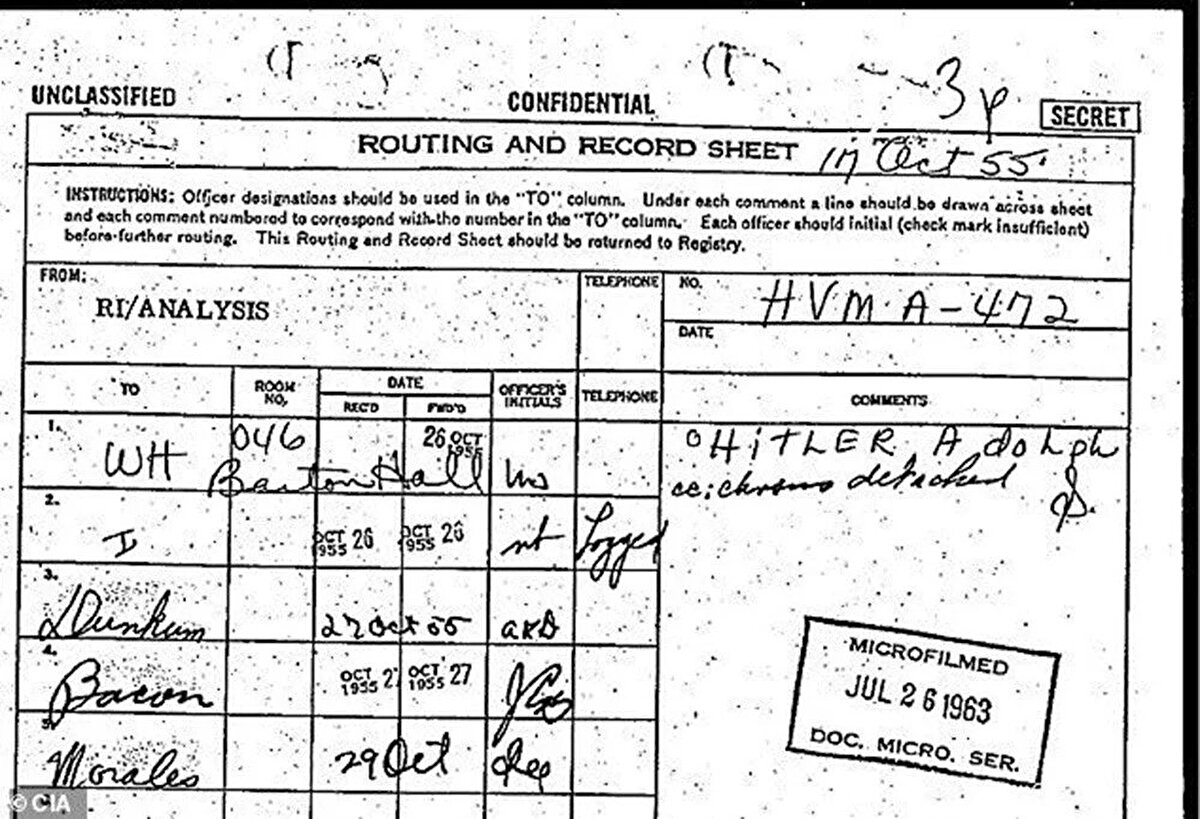 3 p
UNCLASSIFIED CONFIDENTIAL SECRET
ROUTING AND RECORD SHEET 17 Oct 55
INSTRUCTIONS: Officer designations should be used in the "TO" column. Under each comment a line should be drawn across sheet
and each comment numbered to correspond with the number in the "TO" column. Each officer should initial (check mark insufficient)
before further routing. This Routing and Record Sheet should be returned to Registry.
FROM:
RI/ANALYSIS
TELEPHONE
NO.
HVM A-472
DATE
TO
ROOM
NO.
DATE
REC'D
FWD'D
OFFICER'S
INITIALS
TELEPHONE
COMMENTS
1.
WH
046
Barton Hall
26 OCT
1955
HiTLER Adolph
cc: chrono detached
2.
I
OCT 26
1955
OCT 26
1955
nt
Logged
3.
Dunkum
27 Oct 55
akD
4.
Bacon
OCT 27
1955
OCT 27
1955
5.
Morales
29 Oct
MICROFILMED
JUL 26 1963
DOC. MICRO. SER.
© CIA